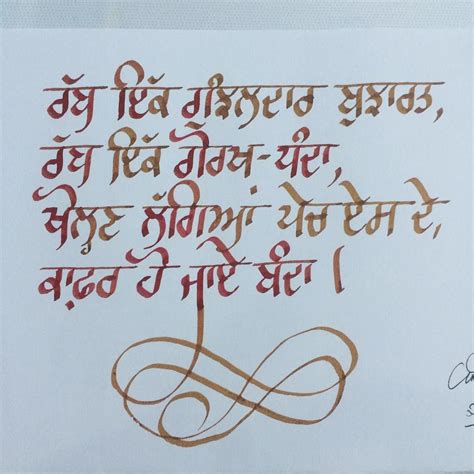 ਰੱਬ ਇੱਕ ਗੁੰਝਲਦਾਰ ਬੁਝਾਰਤ,
ਰੱਬ ਇੱਕ ਗੋਰਖ-ਧੰਦਾ,
ਖੋਲ੍ਹਣ ਲੱਗਿਆਂ ਪੇਚ ਏਸ ਦੇ,
ਕਾਫ਼ਰ ਹੋ ਜਾਏ ਬੰਦਾ।